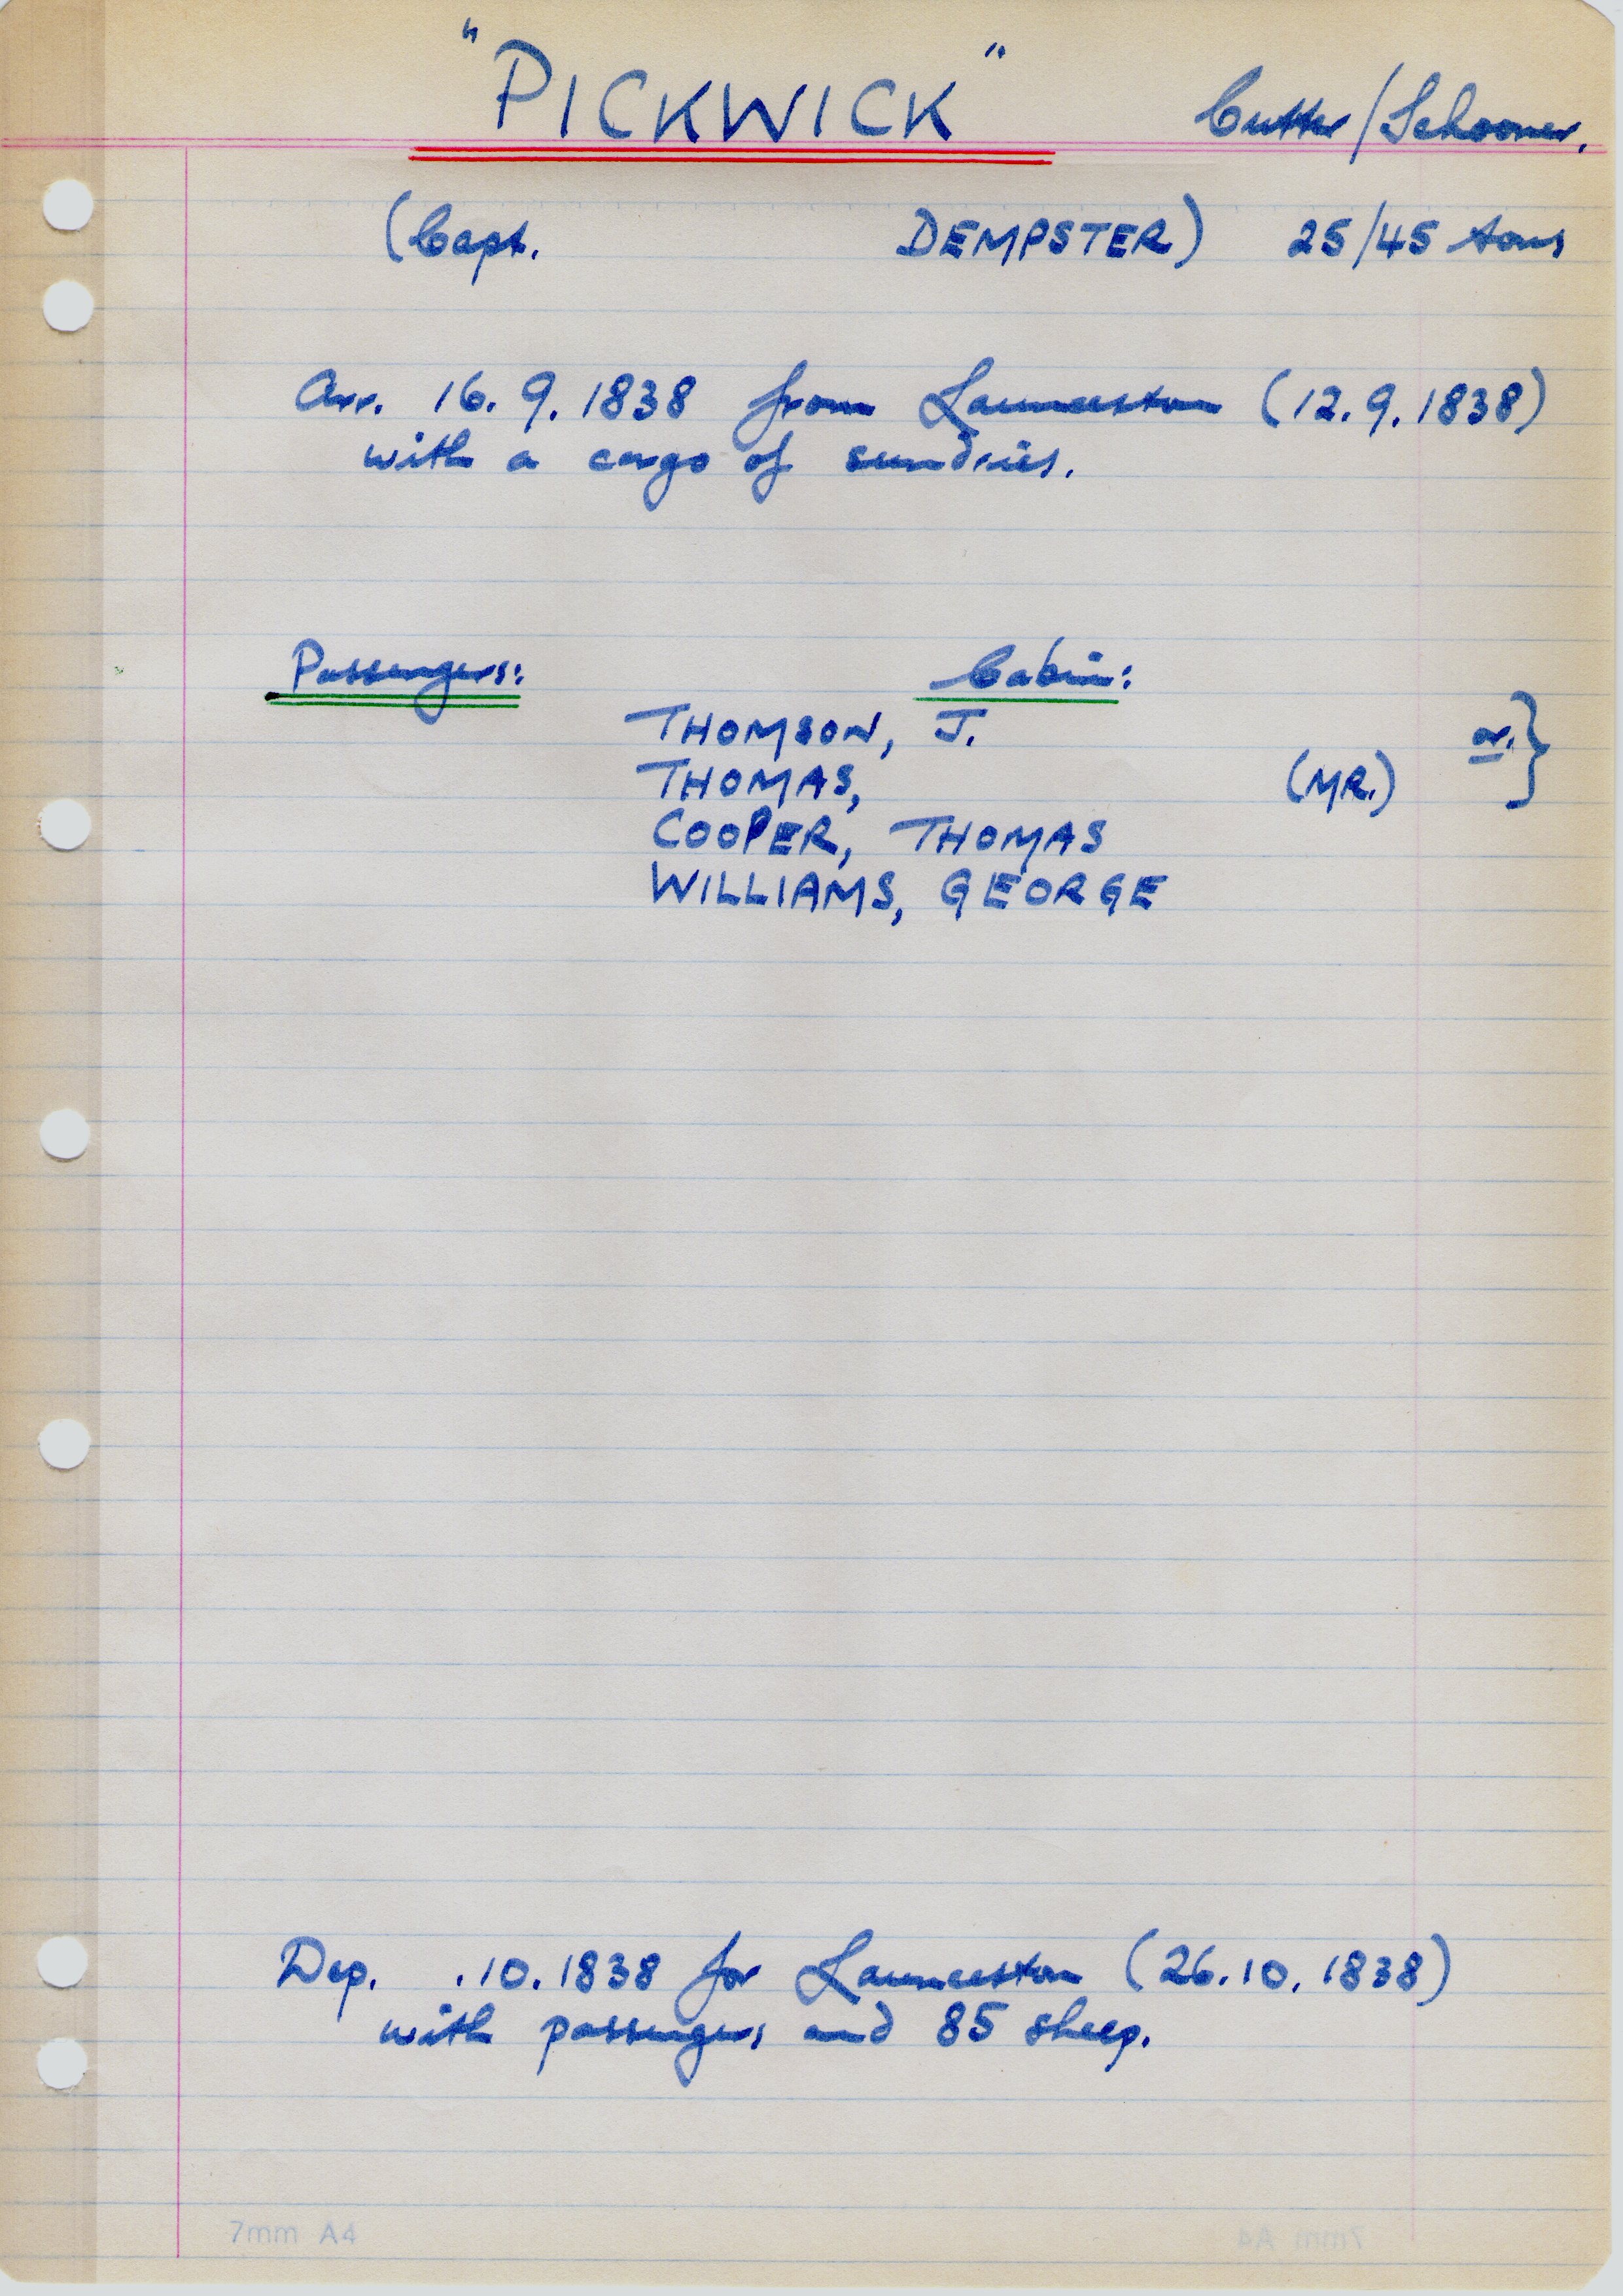 "PICKWICK" Cutter/Schooner.
(Capt. DEMPSTER) 25/45 tons
Arr. 16.9.1838 from Launceston (12.9.1838)
with a cargo of sundries.
Passengers: Cabin:
THOMSON, J. or. }
THOMAS, (MR.)
COOPER, THOMAS
WILLIAMS, GEORGE
Dep. .10.1838 for Launceston (26.10.1838)
with passengers and 85 sheep.
7mm A4